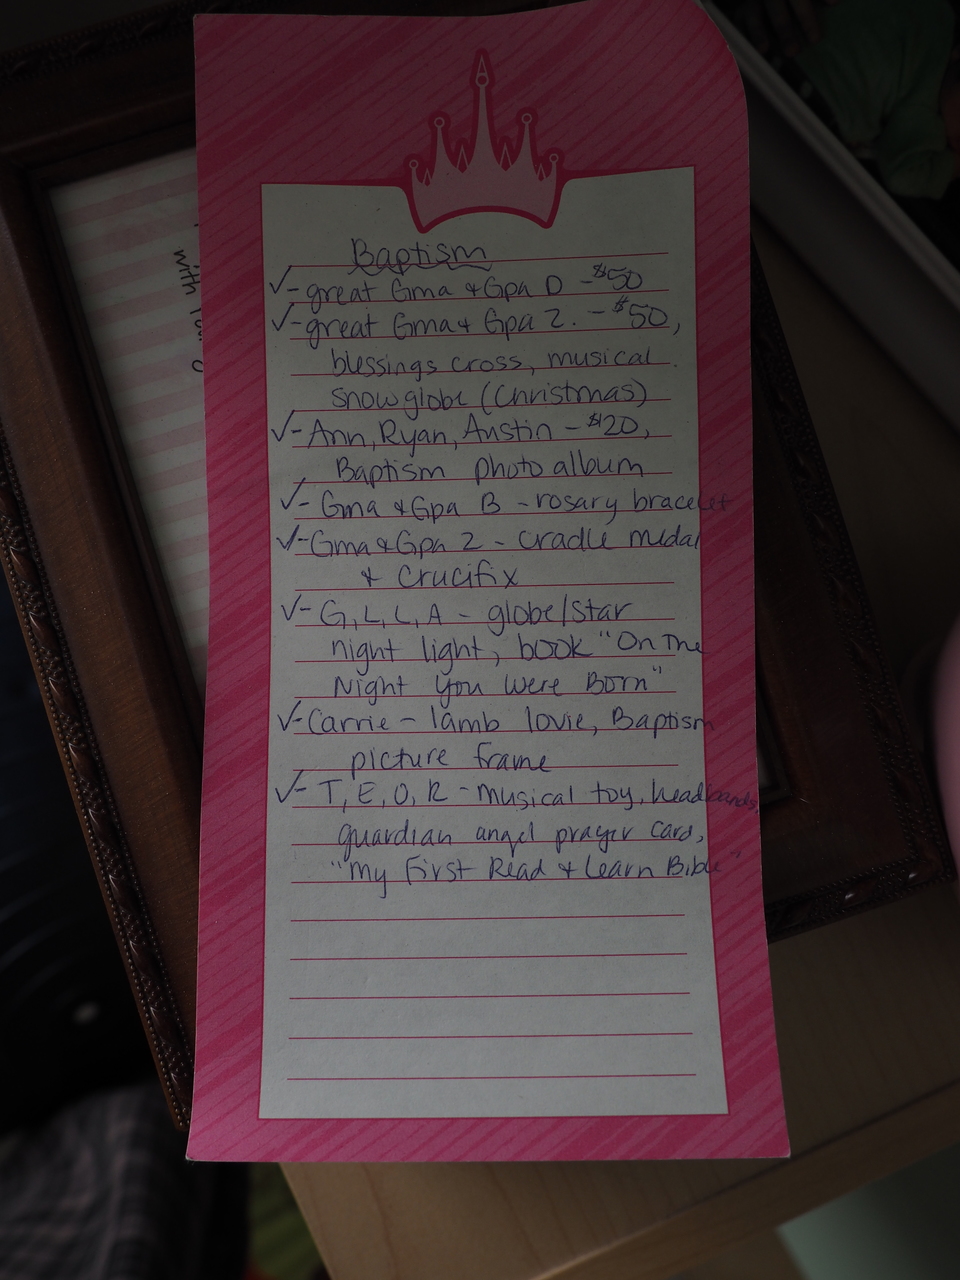 Baptism
✓- great Gma & Gpa D - $50
✓- great Gma & Gpa Z. - $50,
blessings cross, musical
snowglobe (Christmas)
✓- Ann, Ryan, Austin - $20,
Baptism photo album
✓- Gma & Gpa B - rosary bracelet
✓- Gma & Gpa Z - cradle medal
& crucifix
✓- G, L, L, A - globe/star
night light, book "On The
Night You Were Born"
✓- Carrie - lamb lovie, Baptism
picture frame
✓- T, E, O, R - musical toy, headbands,
guardian angel prayer card,
"My First Read & Learn Bible"
with